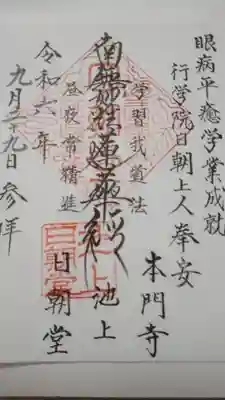 眼病平癒学業成就
行学院日朝上人奉安
本門寺
学習我道法
池上
南無妙法蓮華経
昼夜常精進
日朝堂
令和六年
九月二十九日参拝